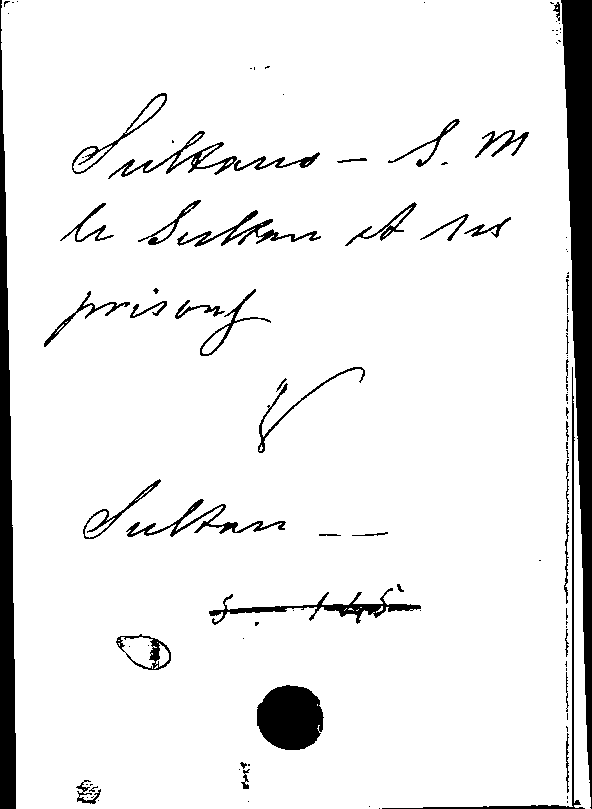 Sultans – S. M
le Sultan et ses
prisons
V
Sultan – –
S. 145